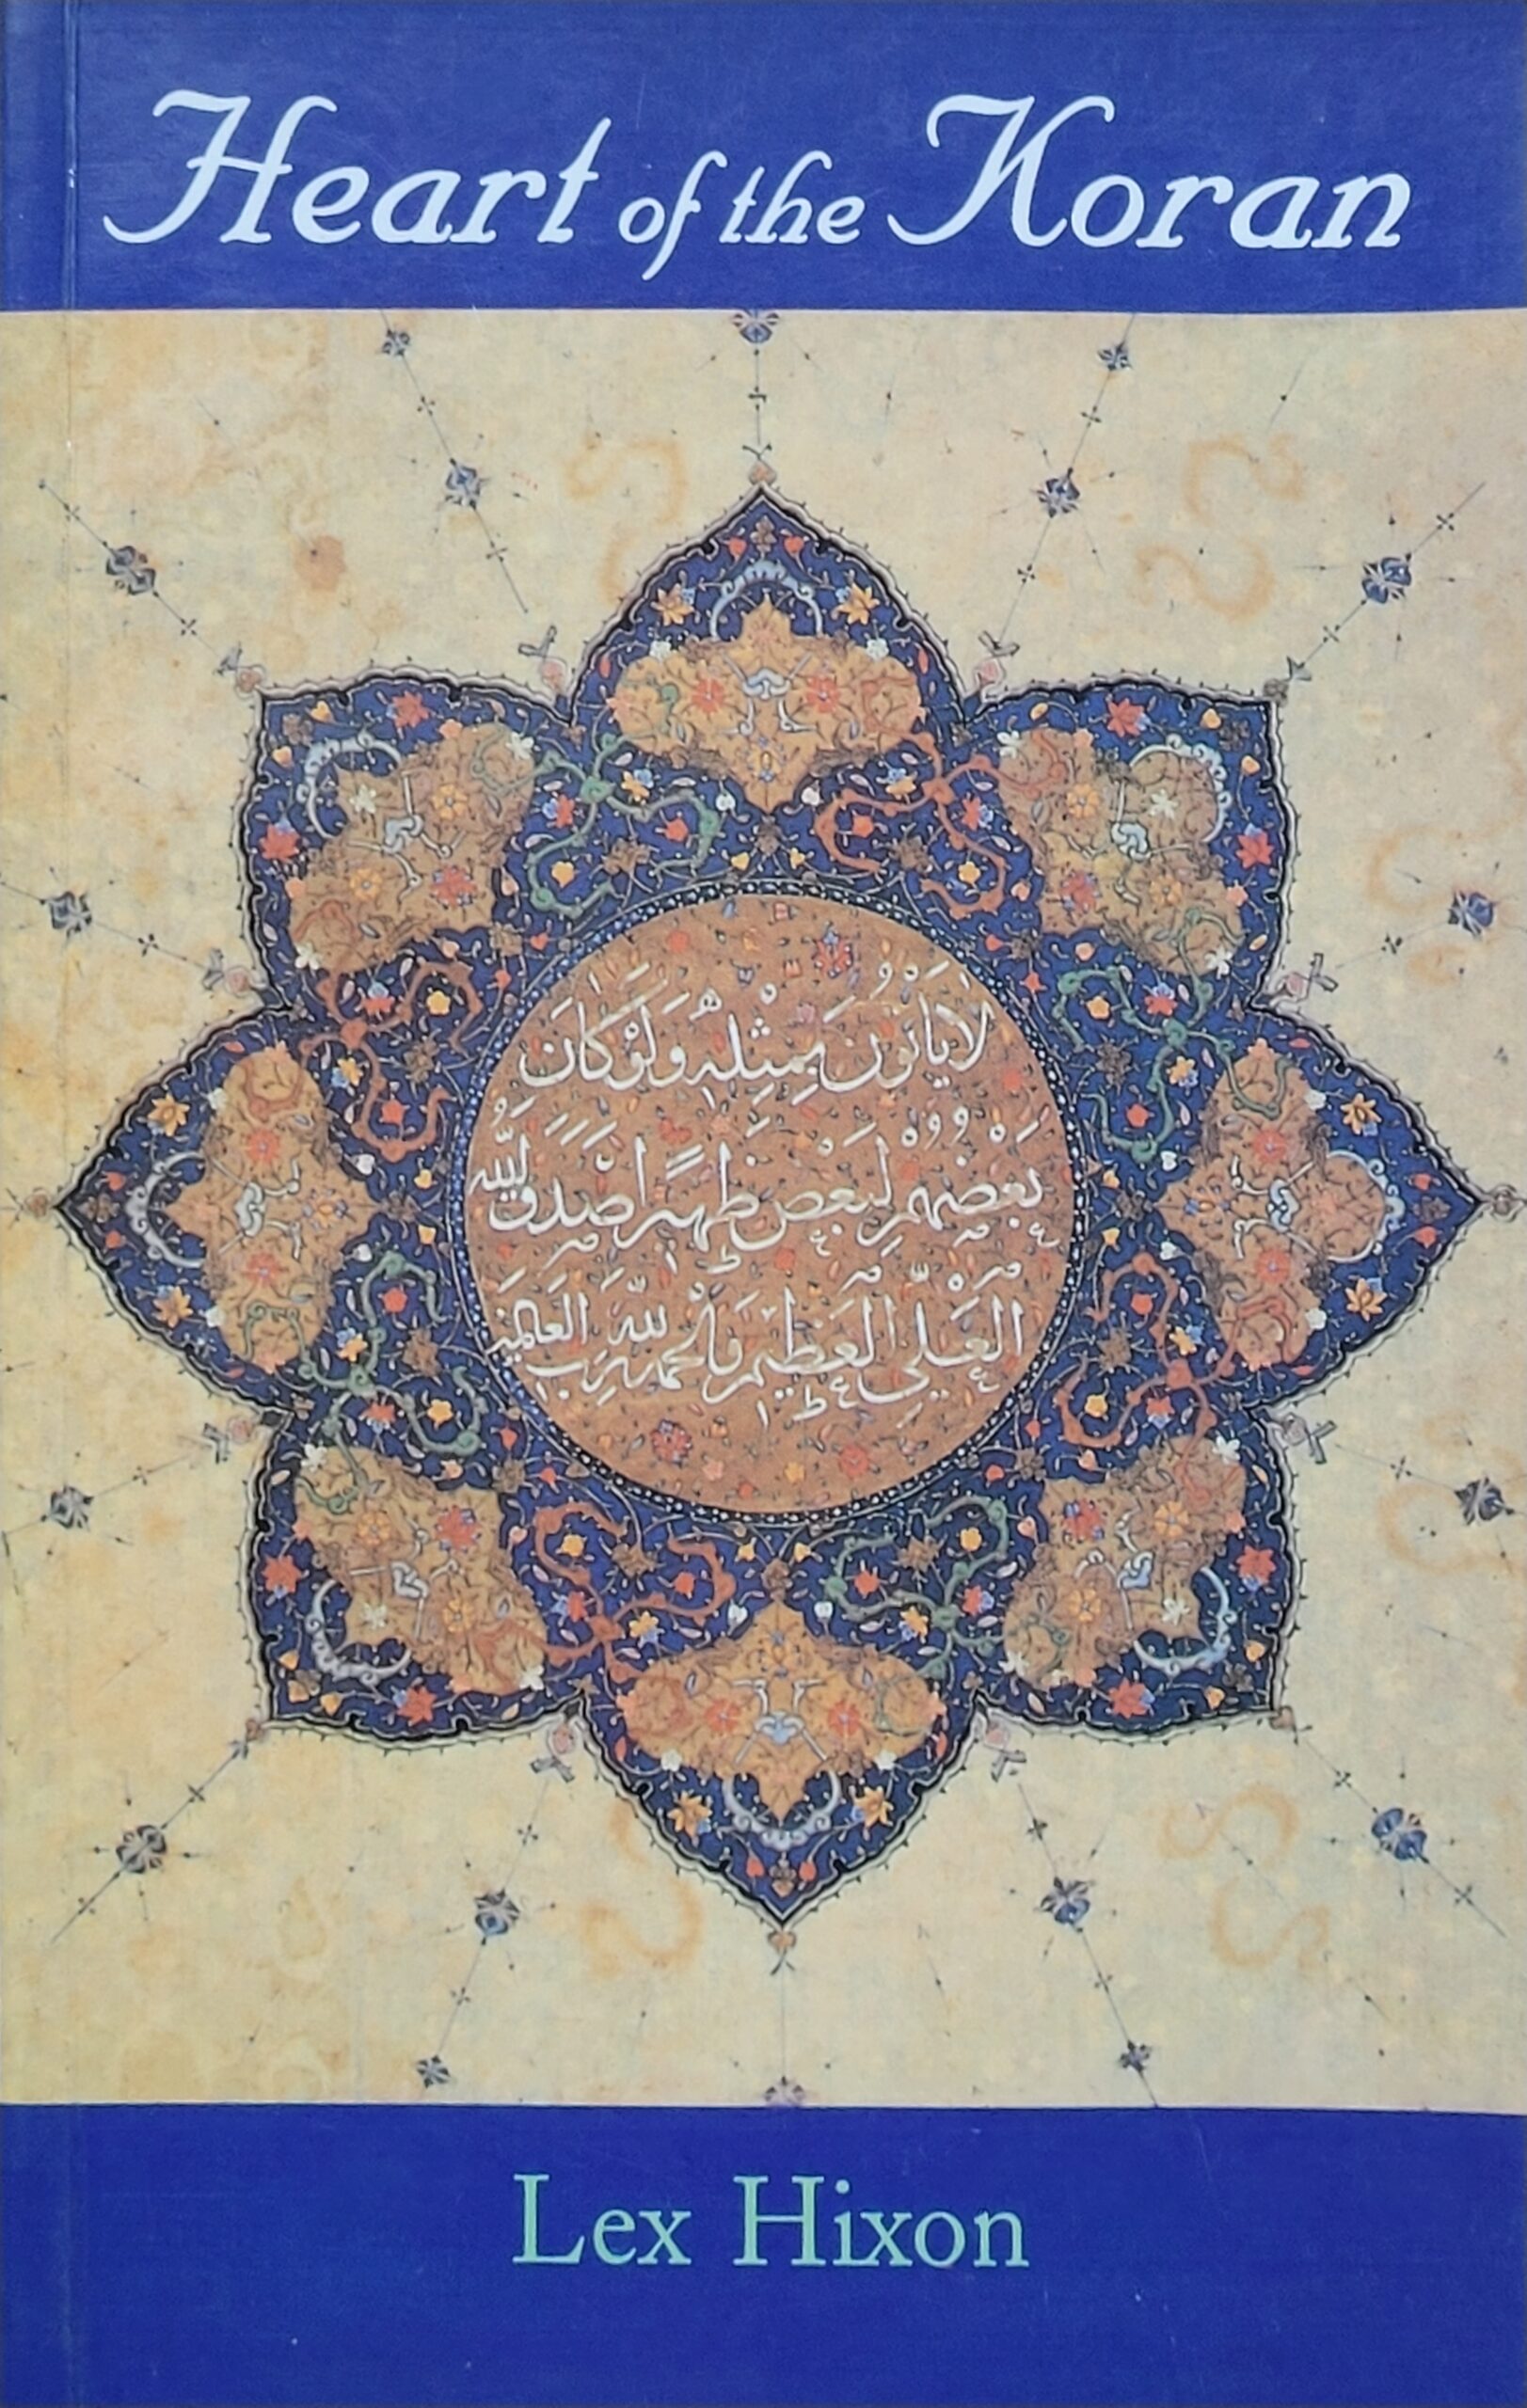 Heart of the Koran
لَا يَأْتُونَ بِمِثْلِهِ وَلَوْ كَانَ
بَعْضُهُمْ لِبَعْضٍ ظَهِيرًا صَدَقَ اللَّهُ
الْعَلِيُّ الْعَظِيمُ وَالْحَمْدُ لِلَّهِ رَبِّ الْعَالَمِينَ
Lex Hixon